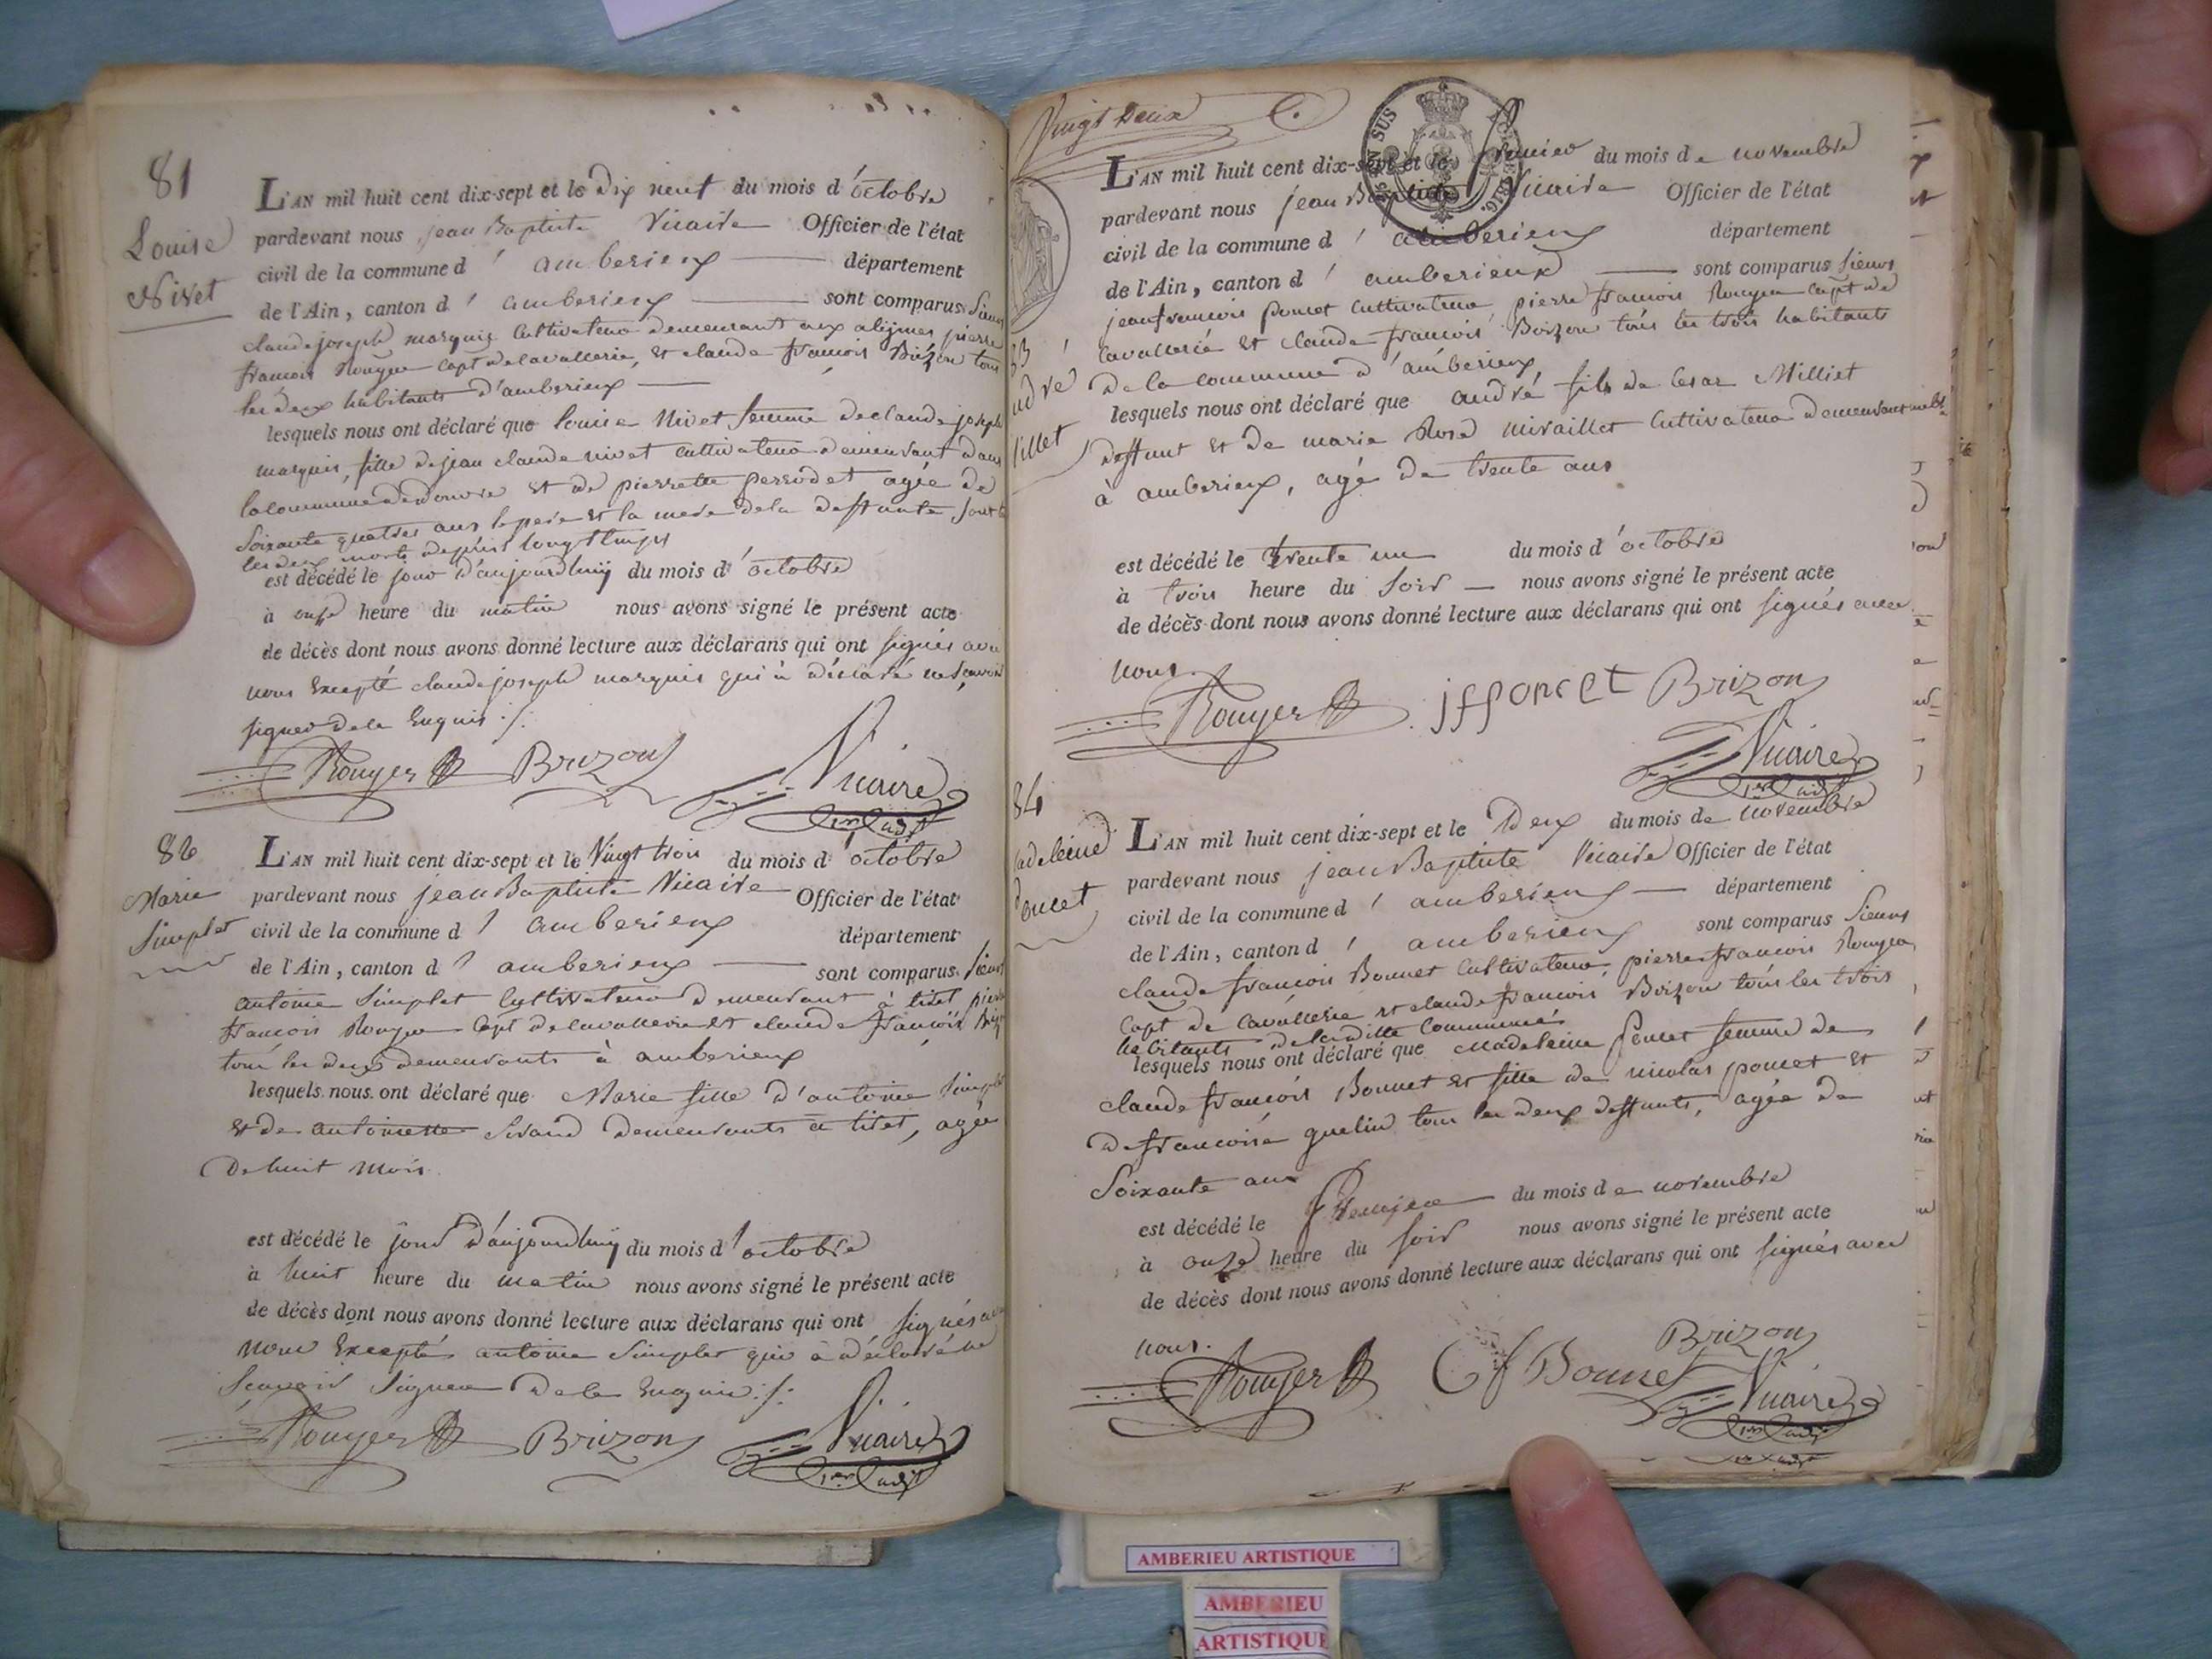 81
Louise
Nivet
L'AN mil huit cent dix-sept et le dix neuf du mois d'octobre
pardevant nous jean Baptiste Vicaire Officier de l'état
civil de la commune d' amberieux département
de l'Ain, canton d' amberieux sont comparus Sieurs
claude joseph marquis Cultivateur demeurant aux alijmes pierre
francois Rouyer capt de cavallerie, et claude francois Brizon tous
les deux habitants d'amberieux
lesquels nous ont déclaré que louise Nivet femme de claude joseph
marquis, fille de jean claude nivet cultivateur demeurant dans
la commune de et de pierrette perrodet agée de
soixante quattre ans le pere et la mere de la deffunte sont
les deux morts depuis longttemps
est décédé le jour d'aujourdhuij du mois d'octobre
à onze heure du matin nous avons signé le présent acte
de décès dont nous avons donné lecture aux déclarans qui ont signés avec
nous Excepté claude joseph marquis qui à déclaré ne scavoir
signer de ce Enquis ./.
Rouyer Brizon Vicaire
1er adjt
82
Marie
Simplet
L'AN mil huit cent dix-sept et le Vingt trois du mois d'octobre
pardevant nous jean Baptiste Vicaire Officier de l'état
civil de la commune d' amberieux département
de l'Ain, canton d' amberieux sont comparus Sieurs
antoine Simplet Cultivateur demeurant à tiret pierre
francois Rouyer Capt de cavallerie et claude francois Brizon
tous les deux demeurants à amberieux
lesquels nous ont déclaré que Marie fille d'antoine Simplet
et de antoinette Sirand demeurants à tiret, agée
de huit mois
est décédé le jour d'aujourdhuij du mois d'octobre
à huit heure du matin nous avons signé le présent acte
de décès dont nous avons donné lecture aux déclarans qui ont signés avec
nous Exceptés antoine Simplet qui à déclaré ne
scavoir signer de ce Enquis ./.
Rouyer Brizon Vicaire
1er adjt
Vingt deux
L'AN mil huit cent dix-sept et le premier du mois de novembre
pardevant nous jean Baptiste Vicaire Officier de l'état
civil de la commune d' amberieux département
de l'Ain, canton d' amberieux sont comparus sieurs
jean francois poncet cultivateur, pierre francois Rouyer capt de
cavallerie et claude francois Brizon tous les trois habitants
de la commune d'amberieux
83
ndré
illiet
lesquels nous ont déclaré que andré fils de Cesar Milliet
deffunt et de marie Rose miraillet Cultivateur demeurant
à amberieux, agé de trente ans
est décédé le trente un du mois d'octobre
à trois heure du soir nous avons signé le présent acte
de décès dont nous avons donné lecture aux déclarans qui ont signés avec
nous.
Rouyer jfponcet Brizon
Vicaire
1er adjt
84
adeleine
oncet
L'AN mil huit cent dix-sept et le Deux du mois de novembre
pardevant nous jean Baptiste Vicaire Officier de l'état
civil de la commune d' amberieux département
de l'Ain, canton d' amberieux sont comparus Sieurs
claude francois Bonnet Cultivateur, pierre francois Rouyer
Capt de cavallerie et claude francois Brizon tous les trois
habitants de la ditte Commune
lesquels nous ont déclaré que Madeleine poncet femme de
claude francois Bonnet et fille de nicolas poncet et
de francoise guelin tous les deux deffunts, agée de
Soixante ans
est décédé le premier du mois de novembre
à onze heure du soir nous avons signé le présent acte
de décès dont nous avons donné lecture aux déclarans qui ont signés avec
nous.
Rouyer Cf Bonnet Brizon
Vicaire
1er adjt
AMBERIEU ARTISTIQUE
AMBERIEU
ARTISTIQUE